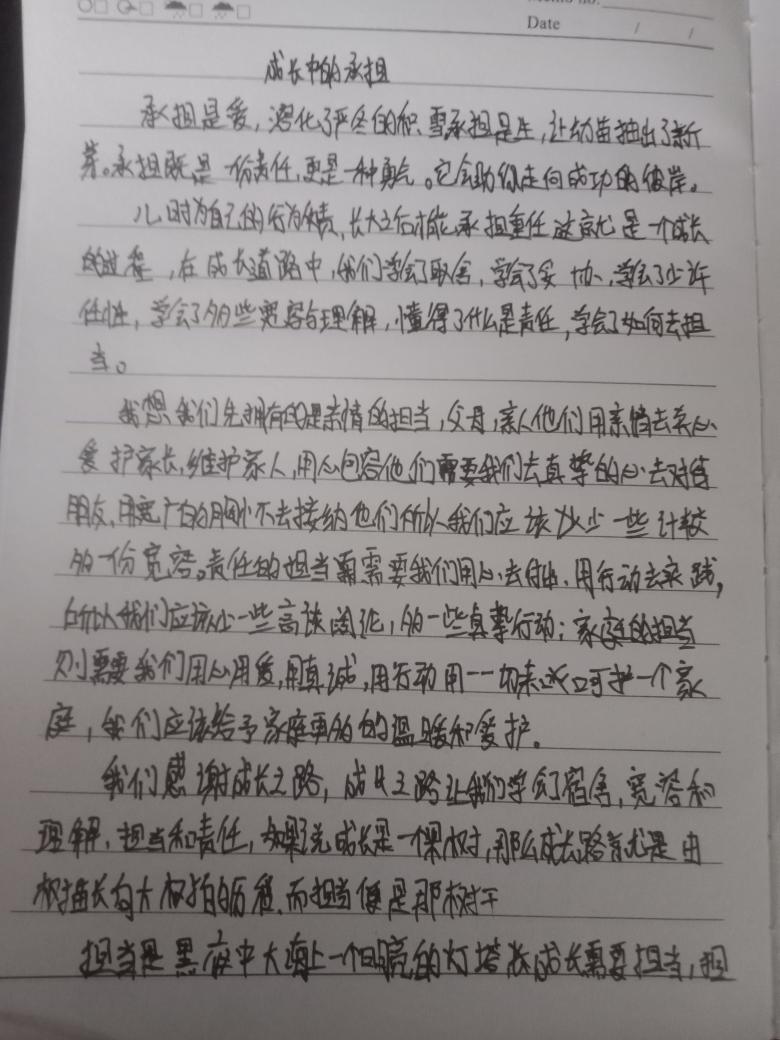 Memo No.
Date / /
成长中的承担
承担是爱，溶化了严冬的积雪承担是生，让幼苗抽出了新
芽。承担既是一份责任，更是一种勇气。它会助你走向成功的彼岸。
儿时为自己的行为负责、长大之后才能承担重任这就是一个成长
的过程，在成长道路中，我们学会了取舍，学会了妥协、学会了少许
任性，学会了多些宽容与理解，懂得了什么是责任，学会了如何去担
当。
我想我们先拥有的是亲情的担当，父母，亲人他们用亲情去关心
爱护家长，维护家人，用心包容他们需要我们去真挚的心去对待
朋友，用宽广的胸怀去接纳他们所以我们应该少一些计较
多一份宽容。责任的担当需要我们用心去付出、用行动去实践，
所以我们应该少一些高谈阔论，多一些真挚行动；家庭的担当
则需要我们用心用爱，用真诚，用行动用一切来呵护一个家
庭，我们应该给予家庭更多的温暖和爱护。
我们感谢成长之路，成长之路让我们学会了宽容和
理解，担当和责任，如果说成长是一棵树，那么成长路就是由
树苗长向大树的历程、而担当便是那树干
担当是黑夜中大海上一个明亮的灯塔成长需要担当，担